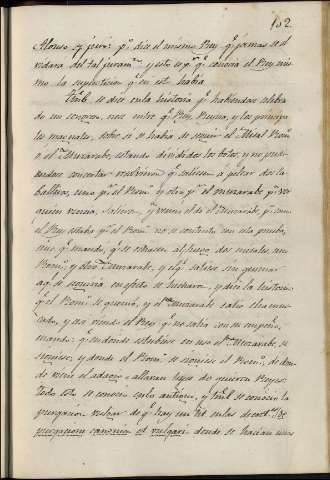 152
Alonso sy juró pr. dice el mismo Rey qe. jamas se ol
vidara del tal juramto. y esto es pr. qe. conocia el Rey mis
mo la supersticion qe. en esto habia
Tambn. se dice en la historia qe. habiendose celebra
do un concilio, nos entre qe. Rey, Reyna, y los principa
les magnates, sobre si se habia de seguir el Misal Rom.
ó el Muzarabe, estando divididos los botos, y no pu
diendose concertar resolvieron qe. saliesen á pelear dos ca
balleros, uno pr. el Rom. y otro pr. el Muzarabe pa. ver
quien vencia. Salieron, y vencio el de el Muzarabe, pr. como
el Rey estaba pr. el Rom. no se contentó con esta prueba,
sino qe. mandó, qe. se echasen al fuego dos misales, un
Rom. y otro Muzarabe, y el qe. saliese sin quemar
aq. se seguiria en efecto se hicieron, y dice la historia
qe. el Rom. se quemó, y el Muzarabe salio sin
y asi viendo el Rey qe. no salia con su empeño,
mandó, qe. en donde estubiese en uso el Muzarabe, se
siguiese, y donde el Rom. se siguiese el Rom. de don
de vino el adagio: allá van leyes do quieren Reyes.
Todo esto se conocia en lo antiguo, y tambn. se conocia la
purgacion vulgar de qe. hay un tit. en las decrets. De
purgatione canonica et vulgari donde se hacian unas